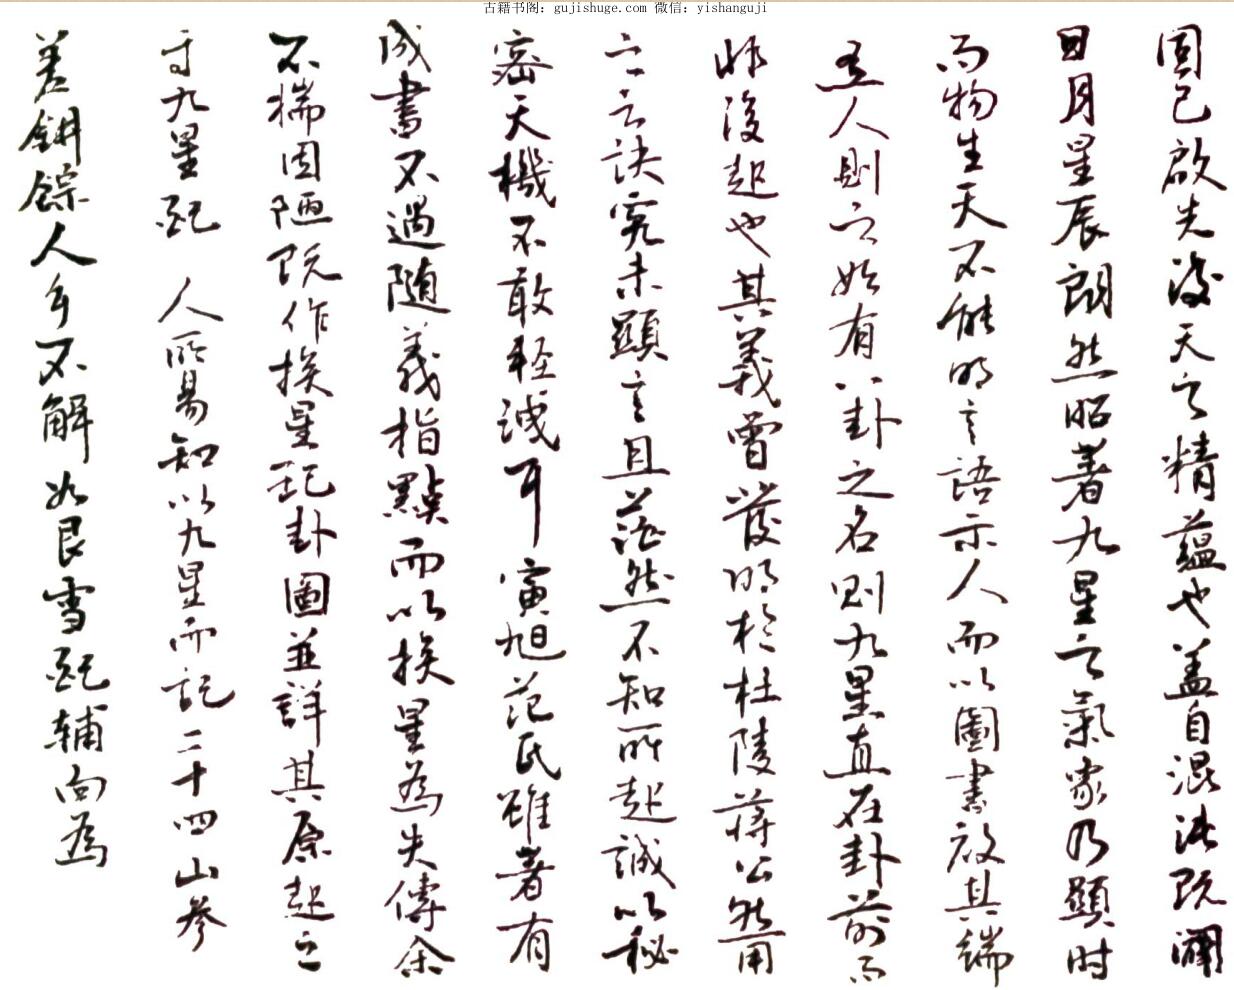 古籍书阁：gujishuge.com 微信：yishanguji
固已啟先後天之精蘊也蓋自混沌既闢
日月星辰朗然昭著九星之氣象乃顯时
而物生天不能明言語示人而以圖書啟其端
聖人則之始有八卦之名則九星直在卦前而
非後起也其義曾發明於杜陵蔣公然用
之之訣究未顯言且茫然不知所起誠以秘
密天機不敢轻洩耳寅旭范氏雖著有
成書不過隨義指點而以挨星為失傳余
不揣固陋既作挨星配卦圖並詳其原起之
于九星配 人所易知以九星而記二十四山參
差餅餘人多不解如艮雪配輔向為